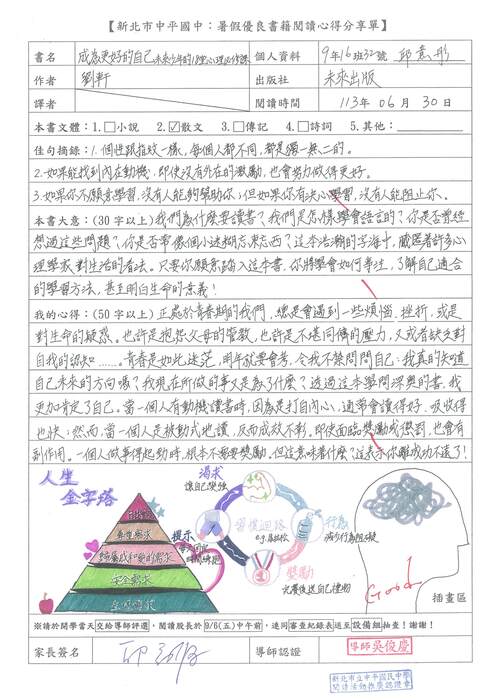 【新北市中平國中：暑假優良書籍閱讀心得分享單】
書名 成為更好的自己 未來少年的18堂心理必修課 個人資料 9年16班32號 邱意彤
作者 劉軒 出版社 未來出版
譯者 閱讀時間 113年06月30日
本書文體：1.□小說 2.☑散文 3.□傳記 4.□詩詞 5.其他：
佳句摘錄：1.個性跟指紋一樣，每個人都不同，都是獨一無二的。
2.如果能找到內在動機，即使沒有外在的激勵，也會努力做得更好。
3.如果你不願意學習，沒有人能夠幫助你；但如果你有決心學習，沒有人能阻止你。
本書大意：(30字以上)我們為什麼要讀書？我們是怎樣學會語言的？你是否曾經
想過這些問題？你是否常像個小迷糊忘東忘西？這本浩瀚的字海中，蘊藏著許多心
理學家對生活的看法。只要你願意踏入這本書，你將學會如何專注，了解自己適合
的學習方法，甚至明白生命的意義！
我的心得：(50字以上)正處於青春期的我們，總是會遇到一些煩惱、挫折，或是
對生命的疑惑。也許是抱怨父母的管教，也許是不堪同儕的壓力，又或者缺乏對
自我的認知……。青春是如此迷茫，明年就要會考，令我不禁問問自己：我真的知道
自己未來的方向嗎？我現在所做的事又是為了什麼？透過這本學問深奧的書，我
更加肯定了自己。當一個人有動機讀書時，因為是打自內心，通常會讀得好、吸收得
也快；然而，當一個人是被動式地讀，反而成效不彰。即使面臨獎勵或懲罰，也會有
副作用。一個人做事得起勁時，根本不需要獎勵，但這意味著什麼？這表示你離成功不遠了！
人生
金字塔
尊重需求
歸屬感和愛的需求
安全需求
生理需求
渴求
讓自己變強
提示
習慣迴路
行為
獎勵
Good
插畫區
※請於開學當天交給導師評選，閱讀股長於9/6(五)中午前，連同審查紀錄表送至設備組抽查！謝謝！
家長簽名 導師認證 導師吳俊慶
新北市立中平國民中學
閱讀活動推廣認證章